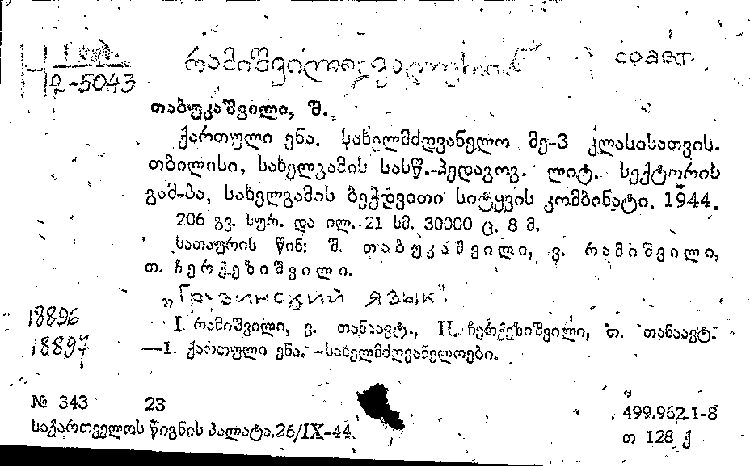 2-5043
თაბუკაშვილი, შ.
ქართული ენა. სახელმძღვანელო მე-3 კლასისათვის.
თბილისი, სახელგამის სასწ.-პედაგოგ. ლიტ. სექტორის
გამ-ბა, სახელგამის ბეჭდვითი სიტყვის კომბინატი. 1944.
206 გვ. სურ. და ილ. 21 სმ. 30000 ც. 8 მ.
სათაურის წინ: შ. თაბუკაშვილი, ვ. რამიშვილი,
თ. ჩერქეზიშვილი.
„Грузинский язык".
I. რამიშვილი, ვ. თანაავტ., II. ჩერქეზიშვილი, თ. თანაავტ.
—1. ქართული ენა.-სახელმძღვანელოები.
18896
18897
№ 343 23
499.962.1-8
საქართველოს წიგნის პალატა,26/IX-44.
თ 128 ქ